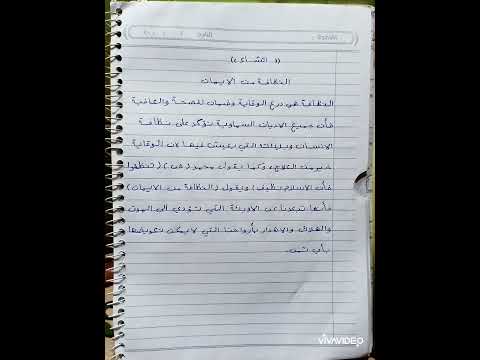 (( انشاء ))
النظافة من الايمان
النظافة هي درع الوقاية وضمان للصحة والعافية
فأن جميع الاديان السماوية تؤكد على نظافة
الانسان وبيئته التي يعيش فيها لان الوقاية
خير من العلاج، وكما يقول محمد (ص) (تنظفوا
فأن الاسلام نظيف) ويقول (النظافة من الايمان)
وأنها تبعدنا عن الاوبئة التي تؤدي الى الموت
والهلاك والاضرار بأرواحنا التي لا يمكن تعويضها
بأي ثمن.
VIVAVIDEO